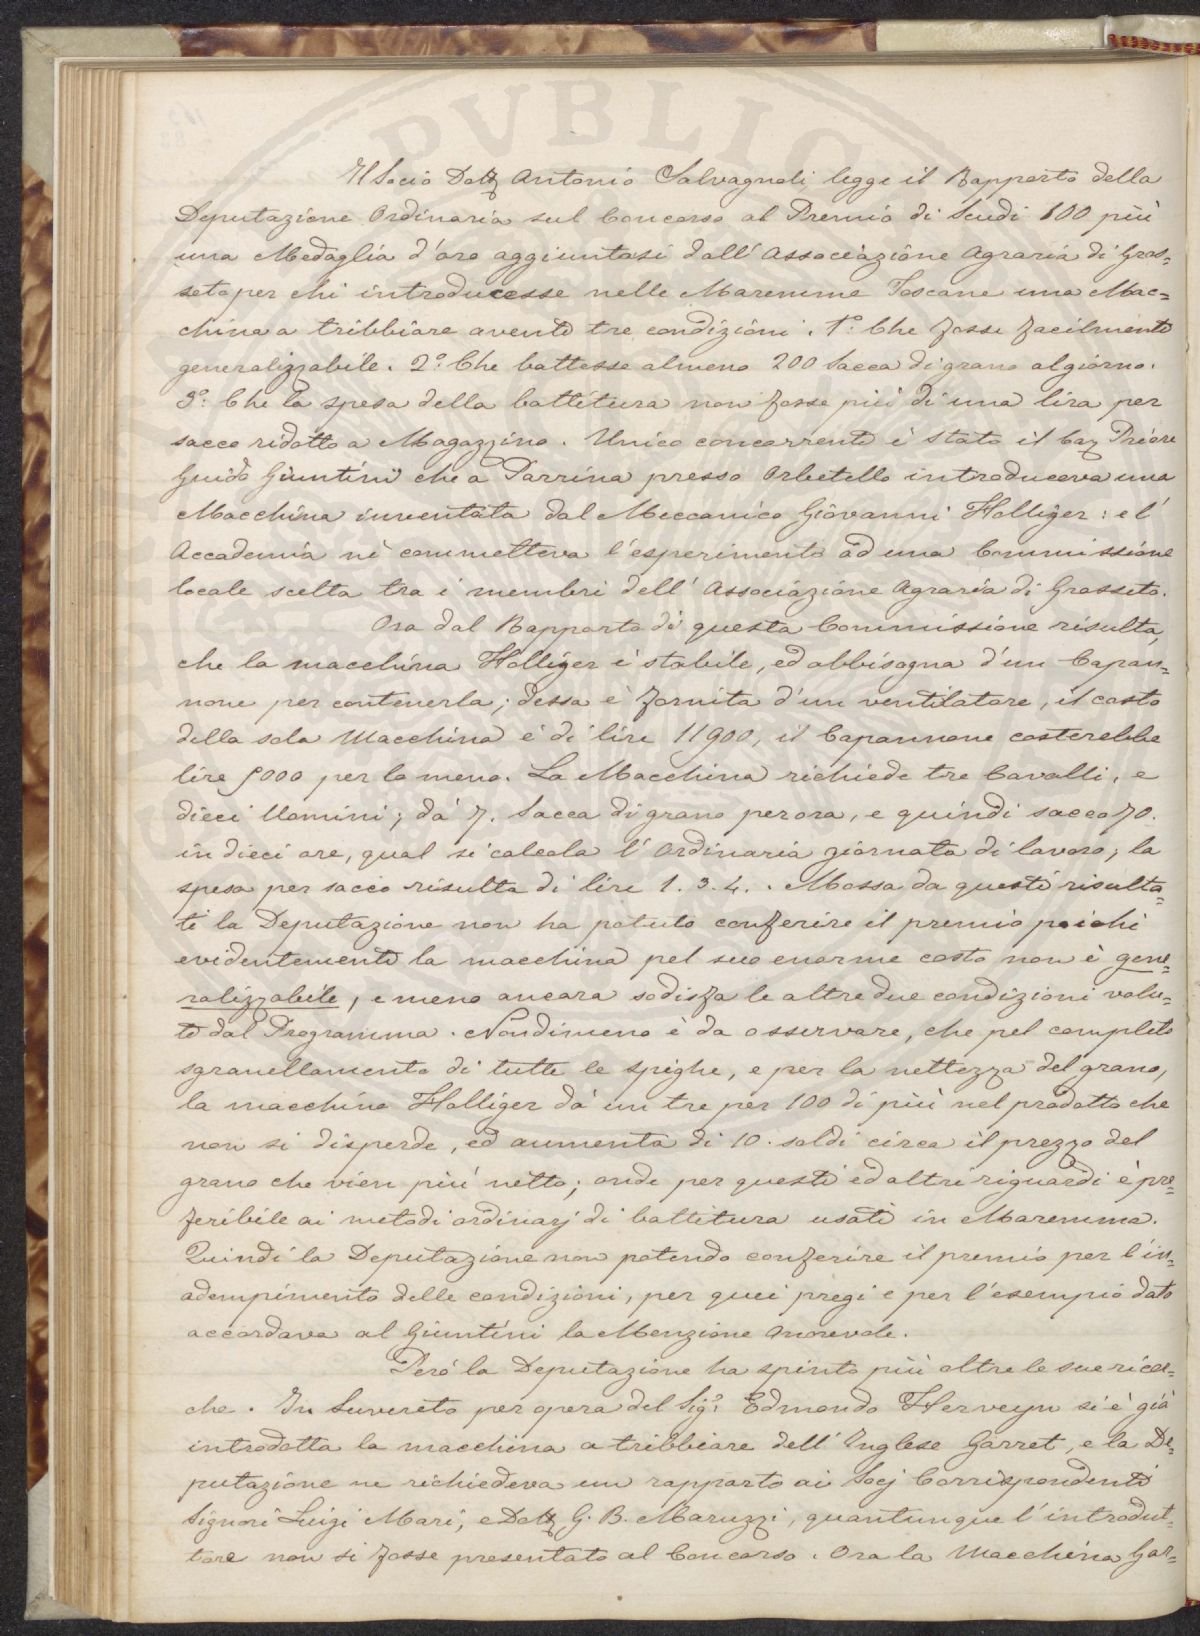 Il Socio Dott Antonio Salvagnoli legge il Rapporto della
Deputazione Ordinaria sul Concorso al Premio di Scudi 100 più
una Medaglia d'oro aggiuntasi dall'Associazione Agraria di Gros=
seto per chi introducesse nelle Maremme Toscane una Mac=
china a tribbiare avente tre condizioni. 1.º Che fosse facilmente
generalizzabile. 2.º Che battesse almeno 200 Sacca di grano al giorno.
3.º Che la spesa della battitura non fosse più di una lira per
sacco ridotto a Magazzino. Unico concorrente è stato il Cav Priore
Guido Giuntini che a Parrina presso Orbetello introduceva una
Macchina inventata dal Meccanico Giovanni Holliger: e l'
Accademia nè commetteva l'esperimento ad una Commissione
locale scelta tra i membri dell'Associazione Agraria di Grosseto.
Ora dal Rapporto di questa Commissione risulta,
che la macchina Holliger è stabile, ed abbisogna d'un Capan=
none per contenerla; dessa è fornita d'un ventilatore, il costo
della sola Macchina è di lire 11900, il Capannone costerebbe
lire 5000 per lo meno. La Macchina richiede tre Cavalli, e
dieci Uomini; dà 7. Sacca di grano per ora, e quindi sacca 70.
in dieci ore, qual si calcola l'ordinaria giornata di lavoro; la
spesa per sacco risulta di lire 1. 3. 4.. Mossa da questi risulta=
ti la Deputazione non ha potuto conferire il premio poichè
evidentemente la macchina pel suo enorme costo non è gene=
ralizzabile, e meno ancora sodisfa le altre due condizioni volu=
te dal Programma. Nondimeno è da osservare, che pel completo
sgranellamento di tutte le spighe, e per la nettezza del grano,
la macchina Holliger dà un tre per 100 di più nel prodotto che
non si disperde, ed aumenta di 10. soldi circa il prezzo del
grano che vien più netto; onde per questi ed altri riguardi è pre=
feribile ai metodi ordinarj di battitura usati in Maremma.
Quindi la Deputazione non potendo conferire il premio per l'in=
adempimento delle condizioni, per quei pregi e per l'esempio dato
accordava al Giuntini la Menzione Onorevole.
Però la Deputazione ha spinto più oltre le sue ricer=
che. In Suvereto per opera del Sig.r Edmondo Herveyn si è già
introdotta la macchina a tribbiare dell'Inglese Garret, e la De=
putazione ne richiedeva un rapporto ai Socj Corrispondenti
Signori Luigi Mari, e Dott G. B. Maruzzi, quantunque l'introdut=
tore non si fosse presentato al Concorso. Ora la Macchina Gar=
PVBLIC